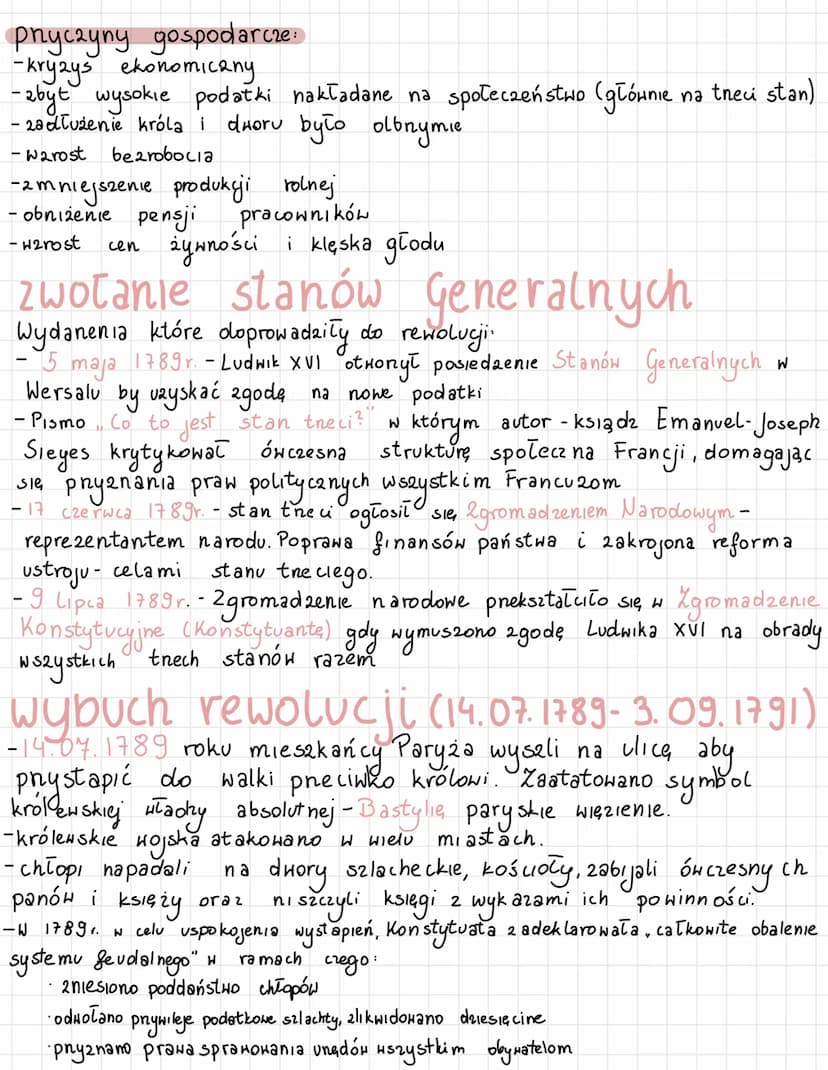 przyczyny gospodarcze:
-kryzys ekonomiczny
-zbyt wysokie podatki nakładane na społeczeństwo (głównie na trzeci stan)
- zadłużenie króla i dworu było olbrzymie
- wzrost bezrobocia
-zmniejszenie produkcji rolnej
- obniżenie pensji pracowników
-wzrost cen żywności i klęska głodu
zwołanie stanów Generalnych
Wydarzenia które doprowadziły do rewolucji:
- 5 maja 1789r. - Ludwik XVI otworzył posiedzenie Stanów Generalnych w
Wersalu by uzyskać zgodę na nowe podatki
- Pismo „Co to jest stan trzeci?" w którym autor - ksiądz Emanuel-Joseph
Sieyes krytykował ówczesna strukturę społeczna Francji, domagając
się przyznania praw politycznych wszystkim Francuzom
- 17 czerwca 1789r. - stan trzeci ogłosił się Zgromadzeniem Narodowym -
reprezentantem narodu. Poprawa finansów państwa i zakrojona reforma
ustroju - celami stanu trzeciego.
- 9 Lipca 1789r. - Zgromadzenie narodowe przekształciło się w Zgromadzenie
Konstytucyjne (Konstytuantę) gdy wymuszono zgodę Ludwika XVI na obrady
wszystkich trzech stanów razem
wybuch rewolucji (14.07.1789- 3.09.1791)
-14.07.1789 roku mieszkańcy Paryża wyszli na ulicę aby
przystąpić do walki przeciwko królowi. Zaatatowano symbol
królewskiej władzy absolutnej - Bastylię paryskie więzienie.
-królewskie wojska atakowano w wielu miastach.
-chłopi napadali na dwory szlacheckie, kościoły, zabijali ówczesnych
panów i księży oraz niszczyli księgi z wykazami ich powinności.
-W 1789r. w celu uspokojenia wystąpień, Konstytuata zadeklarowała „całkowite obalenie
systemu feudalnego" w ramach czego:
· zniesiono poddaństwo chłopów
· odwołano przywileje podatkowe szlachty, zlikwidowano dziesięcine
· przyznano prawa sprawowania urzędów wszystkim obywatelom